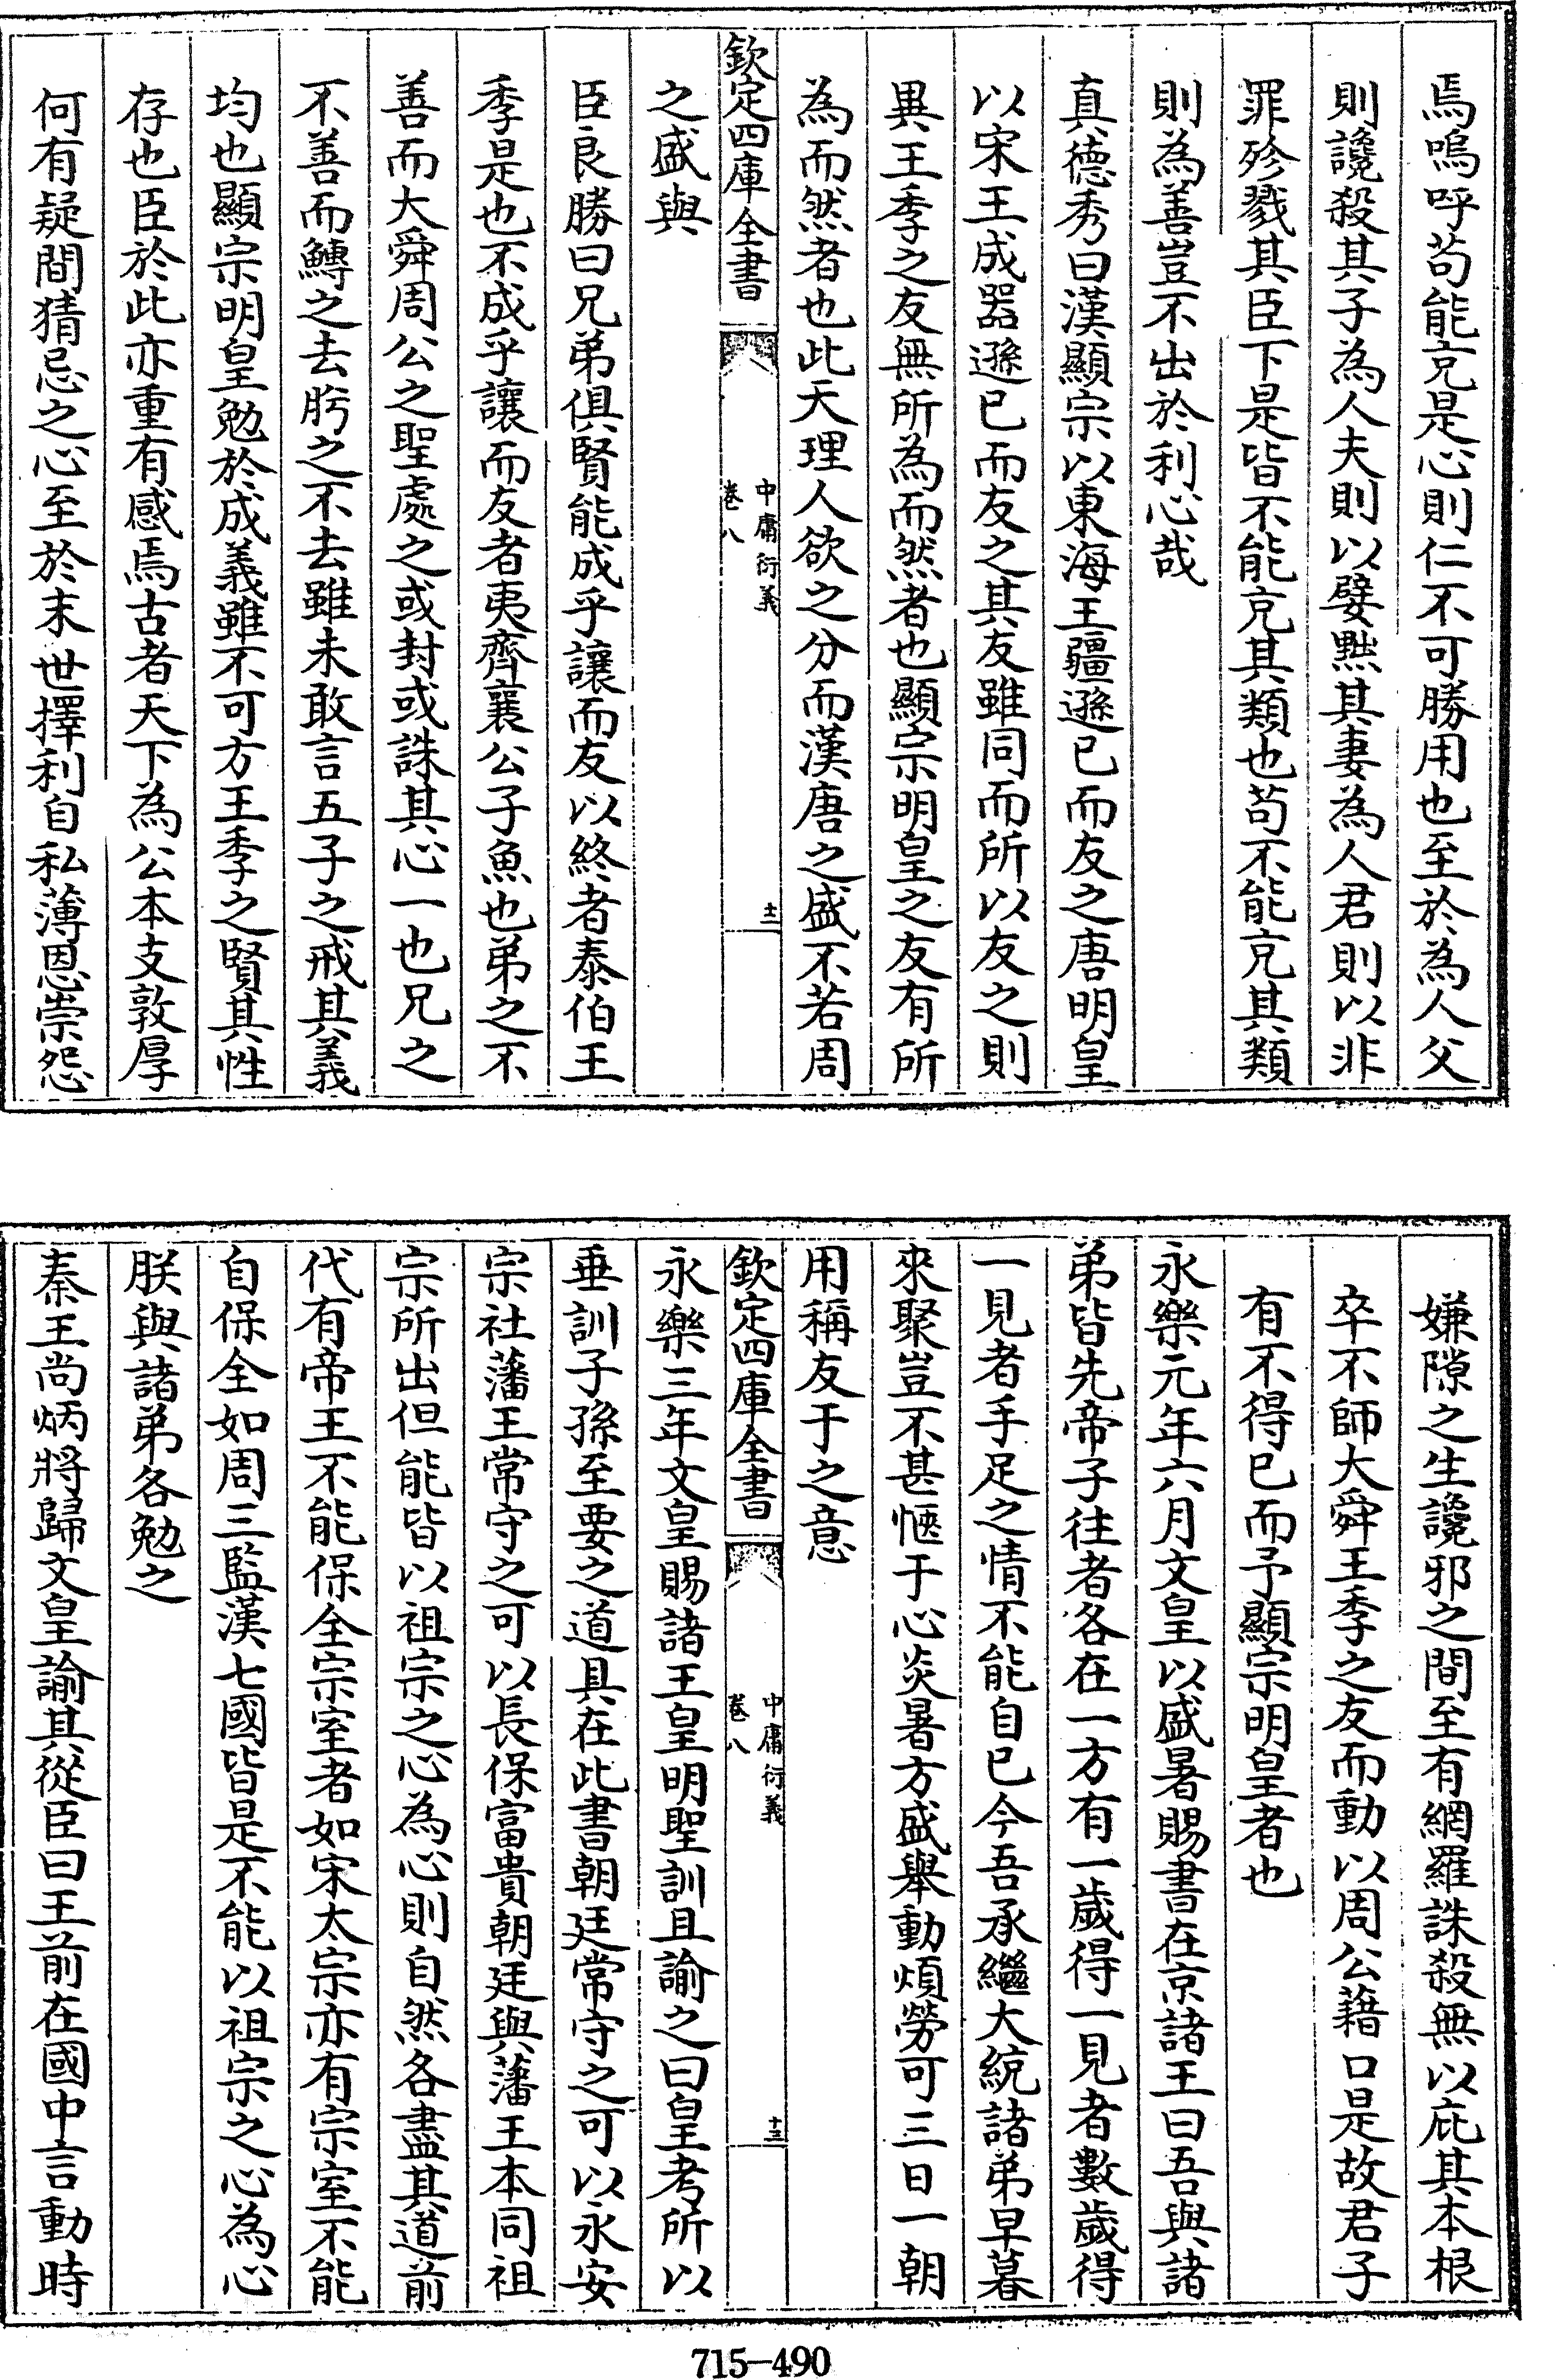 焉嗚呼苟能充是心則仁不可勝用也至於為人父
則讒殺其子為人夫則以嬖黜其妻為人君則以非
罪殄戮其臣下是皆不能充其類也苟不能充其類
則為善豈不出於利心哉
真德秀曰漢顯宗以東海王疆遜已而友之唐明皇
以宋王成器遜已而友之其友雖同而所以友之則
異王季之友無所為而然者也顯宗明皇之友有所
為而然者也此天理人欲之分而漢唐之盛不若周
欽定四庫全書
中庸衍義
卷八
十二
之盛與
臣良勝曰兄弟俱賢能成乎讓而友以終者泰伯王
季是也不成乎讓而友者夷齊襄公子魚也弟之不
善而大舜周公之聖處之或封或誅其心一也兄之
不善而鱄之去肸之不去雖未敢言五子之戒其義
均也顯宗明皇勉於成義雖不可方王季之賢其性
存也臣於此亦重有感焉古者天下為公本支敦厚
何有疑間猜忌之心至於末世擇利自私薄恩崇怨
嫌隙之生讒邪之間至有網羅誅殺無以庇其本根
卒不師大舜王季之友而動以周公藉口是故君子
有不得已而予顯宗明皇者也
永樂元年六月文皇以盛暑賜書在京諸王曰吾與諸
弟皆先帝子往者各在一方有一歲得一見者數歲得
一見者手足之情不能自已今吾承繼大統諸弟早暮
來聚豈不甚愜于心炎暑方盛舉動煩勞可三日一朝
用稱友于之意
欽定四庫全書
中庸衍義
卷八
十三
永樂三年文皇賜諸王皇明聖訓且諭之曰皇考所以
垂訓子孫至要之道具在此書朝廷常守之可以永安
宗社藩王常守之可以長保富貴朝廷與藩王本同祖
宗所出但能皆以祖宗之心為心則自然各盡其道前
代有帝王不能保全宗室者如宋太宗亦有宗室不能
自保全如周三監漢七國皆是不能以祖宗之心為心
朕與諸弟各勉之
秦王尚炳將歸文皇諭其從臣曰王前在國中言動時
715-490